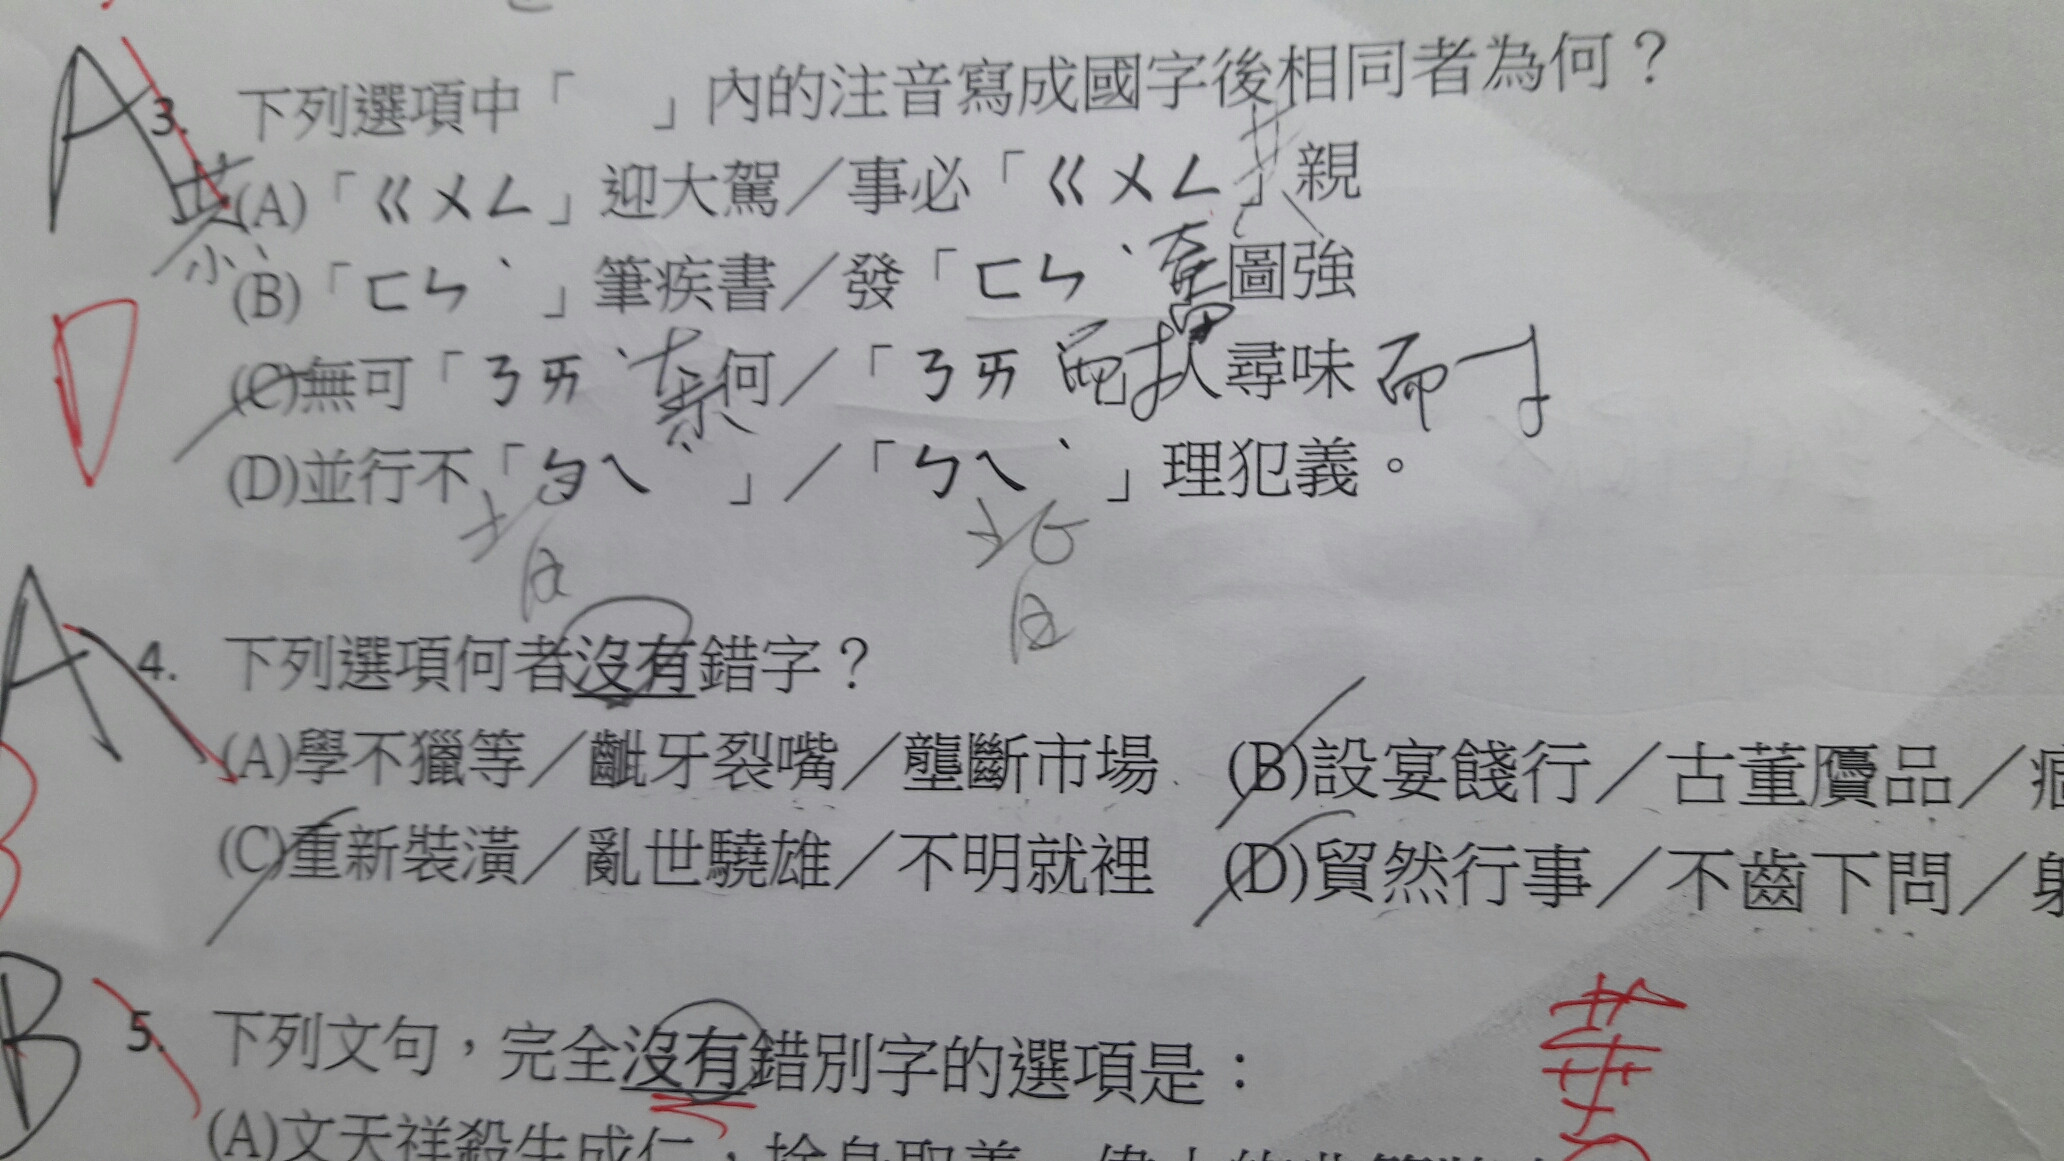 A
3. 下列選項中「 」內的注音寫成國字後相同者為何？
(A)「ㄍㄨㄥ」迎大駕／事必「ㄍㄨㄥ」親
恭
(B)「ㄈㄣˋ」筆疾書／發「ㄈㄣˋ」圖強
奮
(C)無可「ㄋㄞˋ」何／「ㄋㄞ」尋味
奈
(D)並行不「ㄅㄟˋ」／「ㄅㄟˋ」理犯義。
D
A
4. 下列選項何者沒有錯字？
(A)學不獵等／齜牙裂嘴／壟斷市場 (B)設宴餞行／古董贗品／痼
(C)重新裝潢／亂世驍雄／不明就裡 (D)貿然行事／不齒下問／射
B
5. 下列文句，完全沒有錯別字的選項是：
(A)文天祥殺生成仁，捨身取義